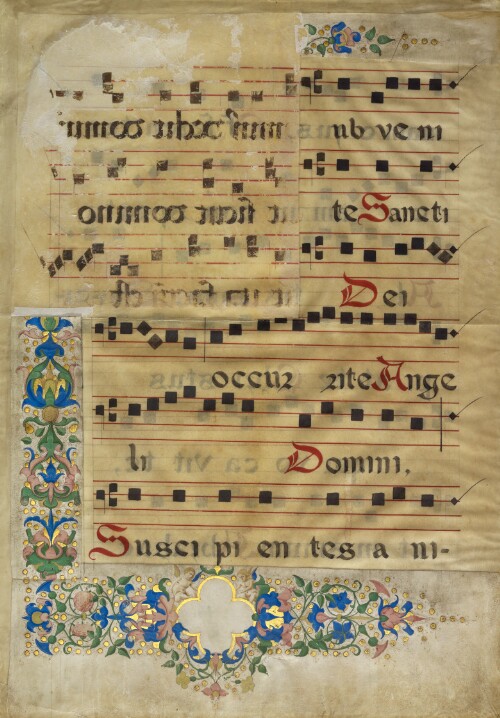 ub ve ni
te Sancti
Dei
occur rite Ange
li Domini,
Suscipi en tes a ni-